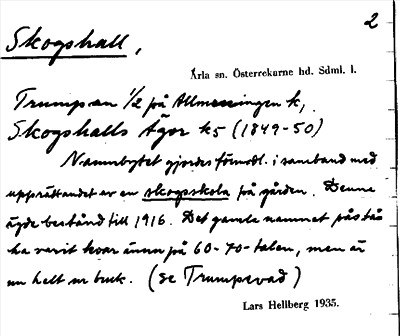 2
Skogshall,
Ärla sn. Österrekarne hd. Sdml. l.
Trumpan 1/2 på Allmänningen k,
Skogshalls Ägor k5 (1849-50)
Namnbytet gjordes förmodl. i samband med
upprättandet av en skogsskola på gården. Denna
ägde bestånd till 1916. Det gamla namnet påstås
ha varit kvar ännu på 60-70-talen, men är
nu helt ur bruk. (Se Trumpevad)
Lars Hellberg 1935.